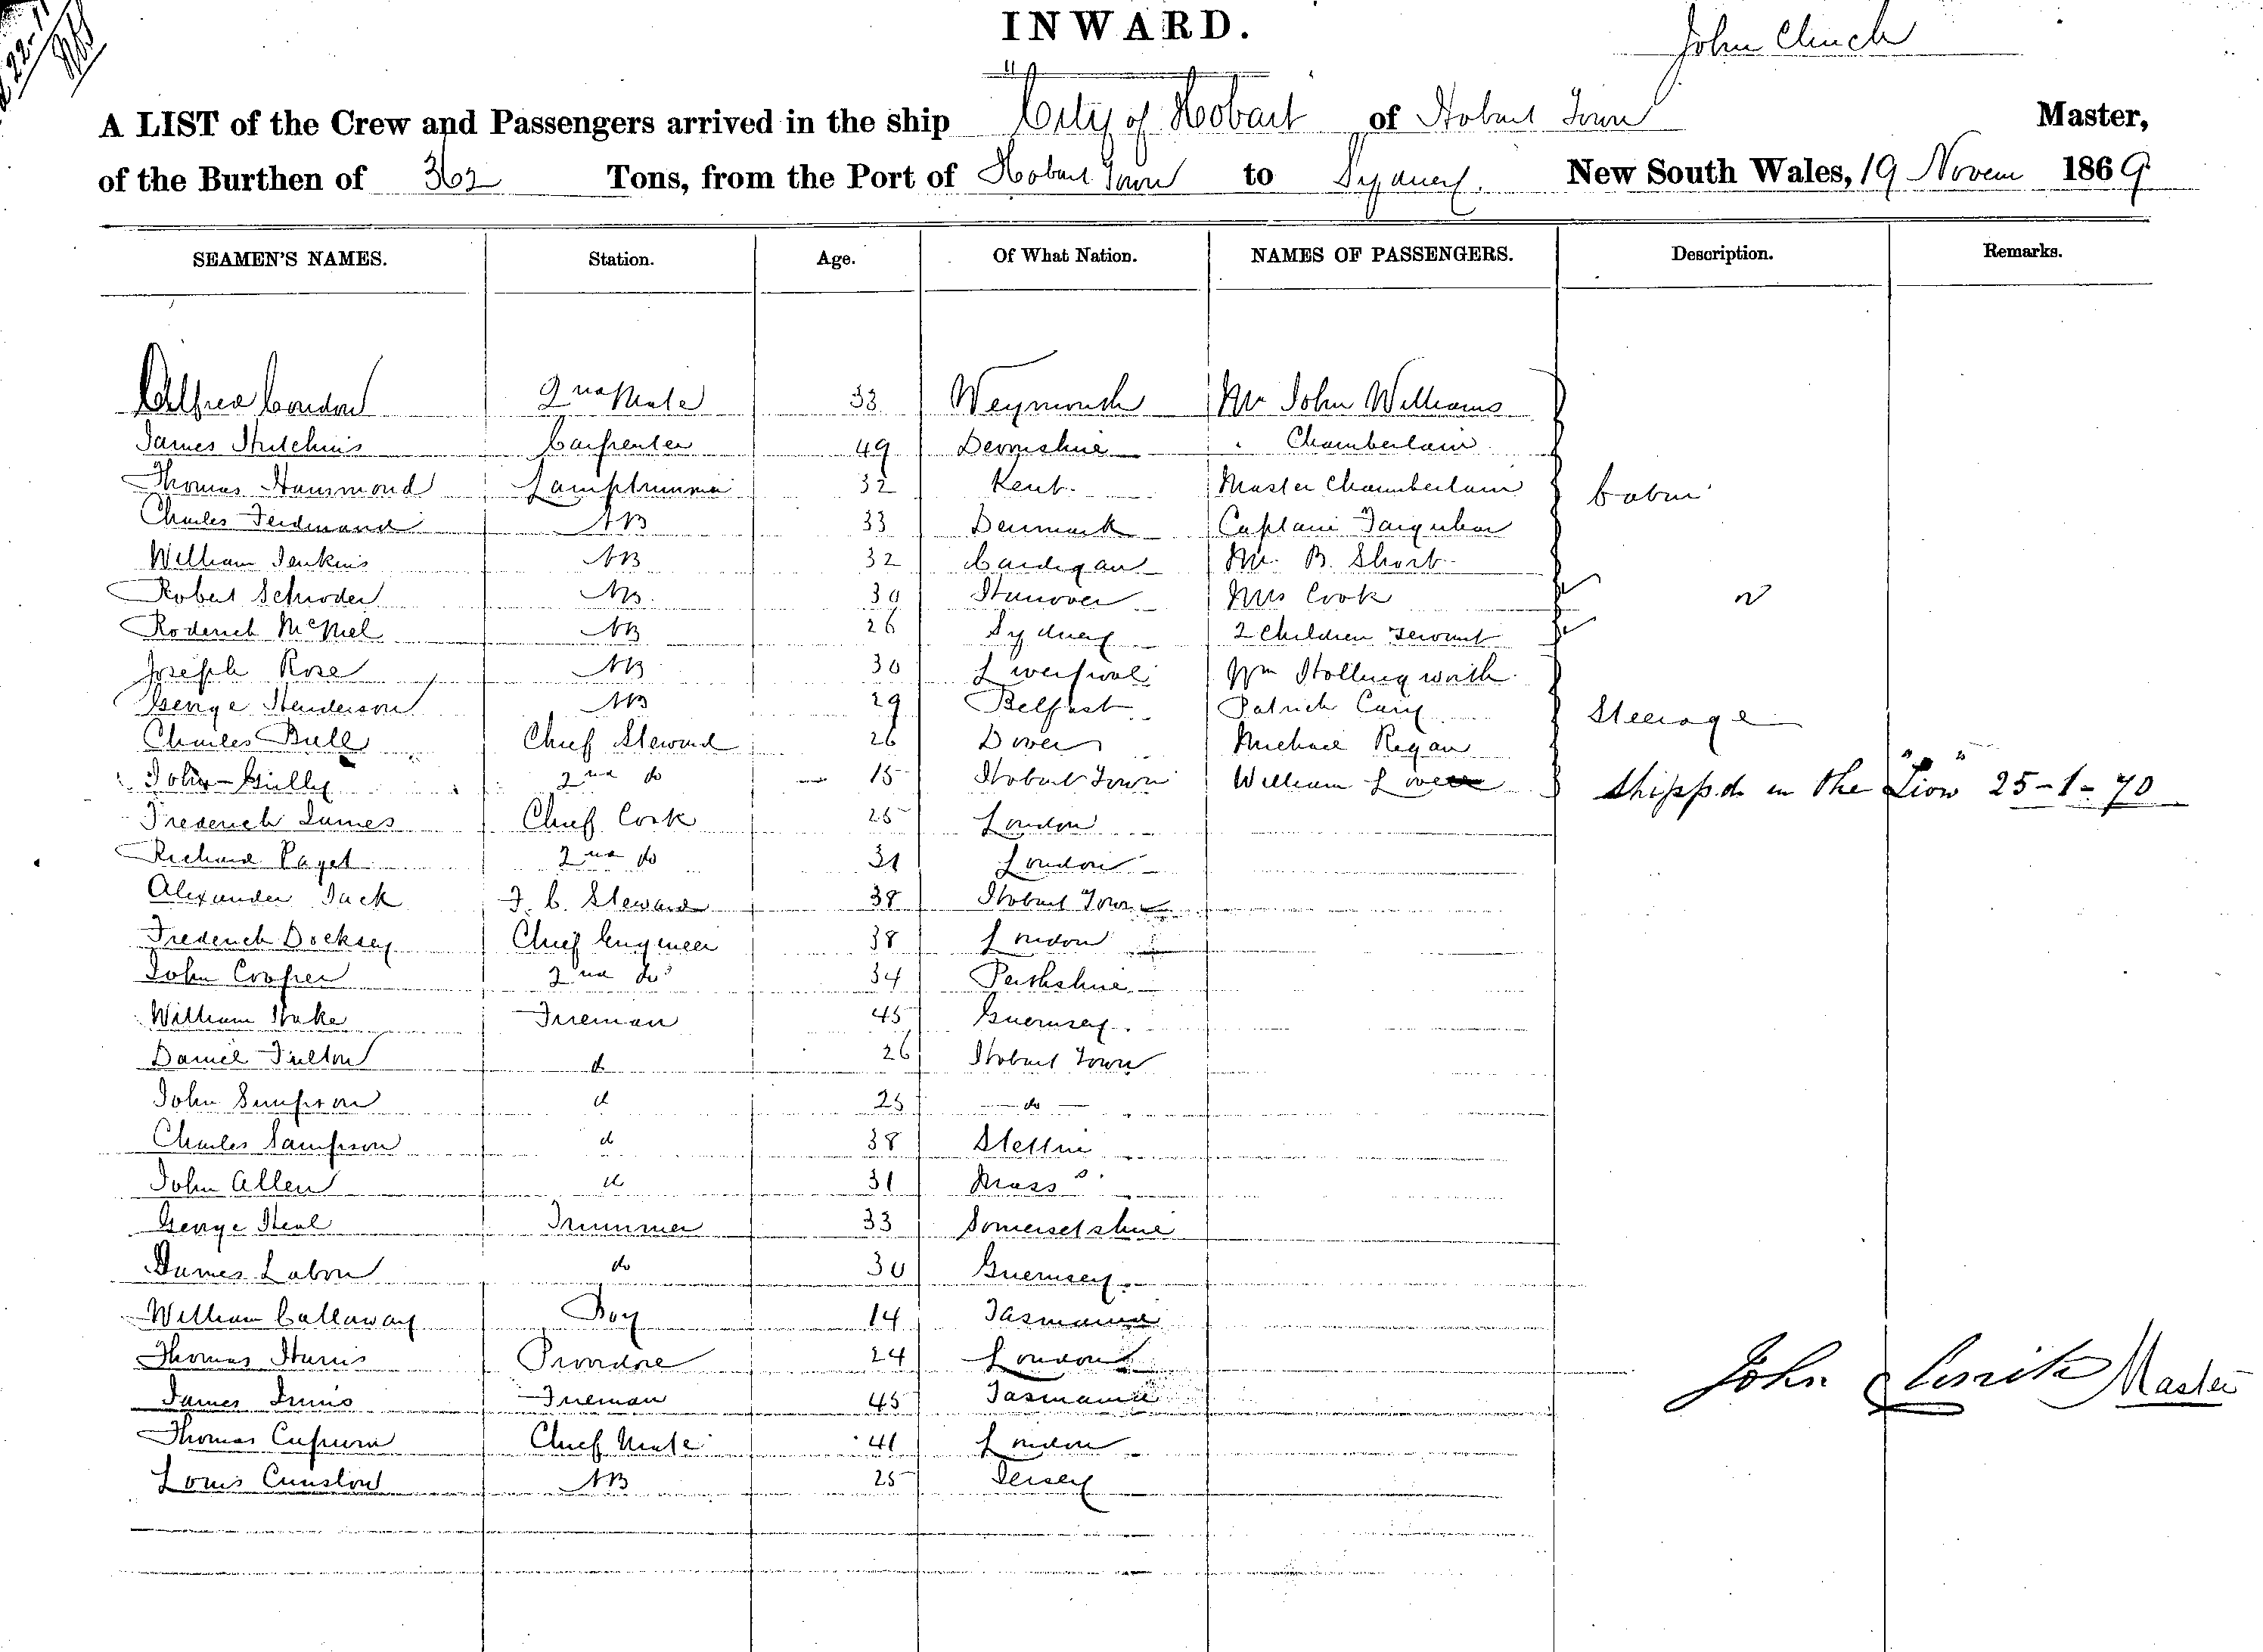 22-11
INWARD.
John Clinch
A LIST of the Crew and Passengers arrived in the ship "City of Hobart of Hobart Town Master,
of the Burthen of 362 Tons, from the Port of Hobart Town to Sydney. New South Wales, 19 Novem 1869
SEAMEN'S NAMES. Station. Age. Of What Nation. NAMES OF PASSENGERS. Description. Remarks.
Alfred Condon 2nd Mate 33 Weymouth Mr John Williams
James Hutchins Carpenter 49 Devonshire " Chamberlain
Thomas Hammond Lamptrimmer 32 Kent. Master Chamberlain Cabin
Charles Ferdinand AB 33 Denmark Captain Farquhar
William Jenkins AB 32 Cardigan Mr. B. Short
Robert Schroder AB 30 Hanover Mrs Cook
Roderick McNiel AB 26 Sydney 2 Children Servant
Joseph Rose AB 30 Liverpool Wm Hollingworth
George Henderson AB 29 Belfast Patrick Cary Steerage
Charles Bull Chief Steward 26 Dover Michael Regan
John Gully 2nd do 15 Hobart Town William Love Shippd. in the "Lion" 25-1-70
Frederick James Chief Cook 25 London
Richard Paget 2nd do 31 London
Alexander Jack F. C. Steward 38 Hobart Town
Frederick Docksey Chief Engineer 38 London
John Cooper 2nd do 34 Perthshire
William Hake Fireman 45 Guernsey.
Daniel Fulton do 26 Hobart Town
John Simpson do 25 do
Charles Sampson do 38 Stettin
John Allen do 31 Mass s.
George Heal Trimmer 33 Somersetshire
James Labon do 30 Guernsey
William Callaway Boy 14 Tasmania
Thomas Harris Providore 24 London
James Innis Fireman 45 Tasmania John Clinch Master
Thomas Chief Mate 41 London
Louis AB 25 Jersey